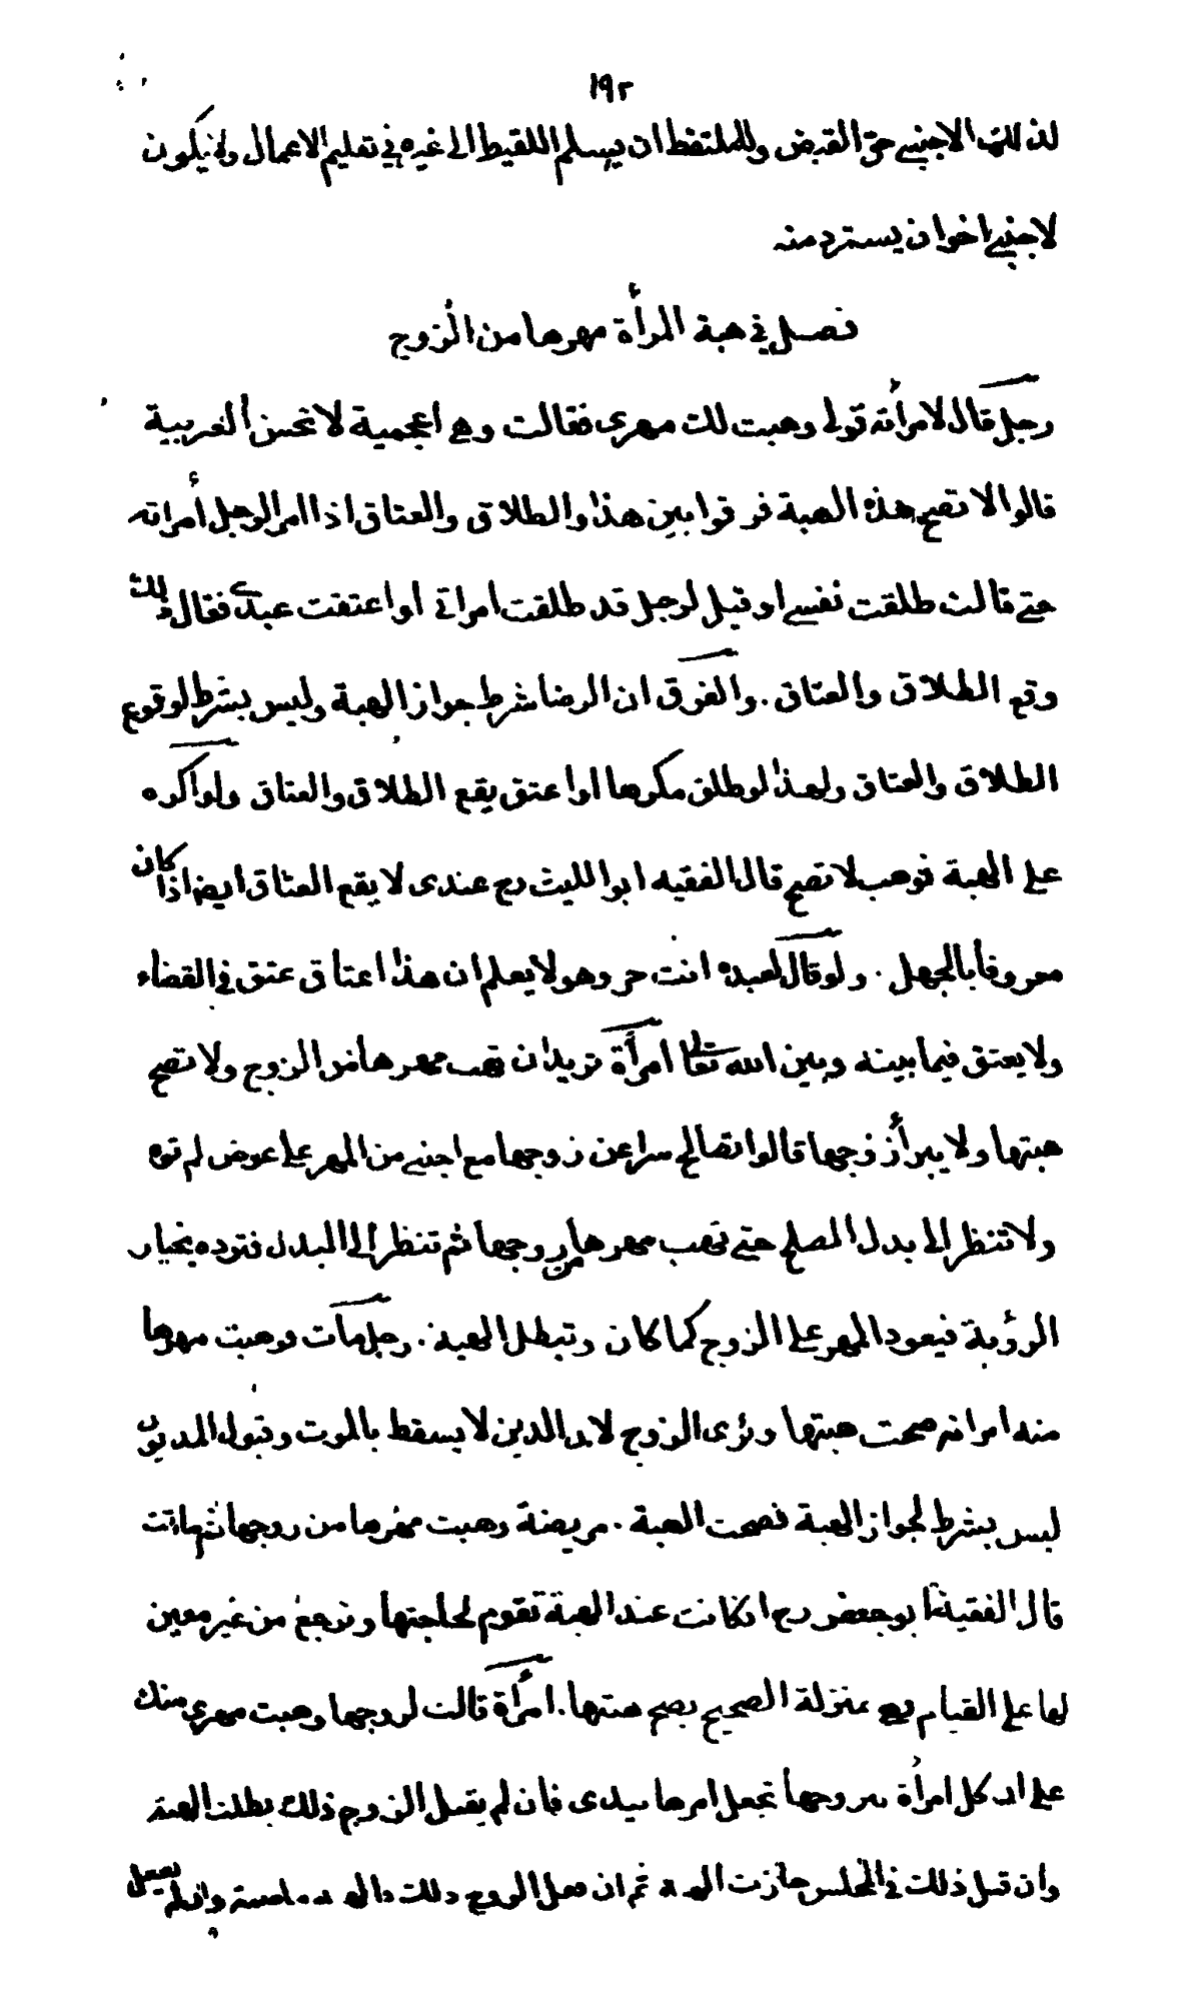 ١٩٢
لذلك الاجنبي حق القبض وللملتقط ان يسلم اللقيط الى غيره في تعليم الاعمال ولا يكون
لاجنبي اخر ان يسترد منه
فصل في هبة المرأة مهرها من الزوج
رجل قال لامرأته قولي وهبت لك مهري فقالت وهي اعجمية لا تحسن العربية
قالوا لا تصح هذه الهبة فرقوا بين هذا والطلاق والعتاق اذا امر الرجل أمراته
حتى قالت طلقت نفسي او قيل لرجل قد طلقت امراتي او اعتقت عبدي فقال ذلك
وقع الطلاق والعتاق . والفرق ان الرضا شرط جواز الهبة وليس بشرط لوقوع
الطلاق والعتاق ولهذا لو طلق مكرها او اعتق يقع الطلاق والعتاق ولو اكره
على الهبة فوهب لا تصح قال الفقيه ابو الليث رح عندى لا يقع العتاق ايضا اذا كان
معروفا بالجهل . ولو قال لعبده انت حر وهو لا يعلم ان هذا اعتاق عتق في القضاء
ولا يعتق فيما بينه وبين الله تعالى امرأة تريد ان تهب مهرها من الزوج ولا تصح
هبتها ولا يبرأ زوجها قالوا تصالح سرا عن زوجها مع اجنبي من المهر على عوض لم تره
ولا تنظر الى بدل الصلح حتى تهب مهرها من زوجها ثم تنظر الى البدل فترده بخيار
الرؤية فيعود المهر على الزوج كما كان وتبطل الهبة . رجل مات فوهبت مهرها
منه امراته صحت هبتها وبرى الزوج لان الدين لا يسقط بالموت وقبول المديون
ليس بشرط لجواز الهبة فصحت الهبة . مريضة وهبت مهرها من زوجها ثم ماتت
قال الفقيه ابو جعفر رح ان كانت عند الهبة تقوم لحاجتها وترجع من غير معين
لها على القيام فهي بمنزلة الصحيح يصح هبتها . امرأة قالت لزوجها وهبت مهري منك
على ان كل امرأة تتزوجها تجعل امرها بيدى فان لم يقبل الزوج ذلك بطلت الهبة
وان قبل ذلك في المجلس جازت الهبة ثم ان فعل الزوج ذلك فالهبة ماضية وان لم يفعل